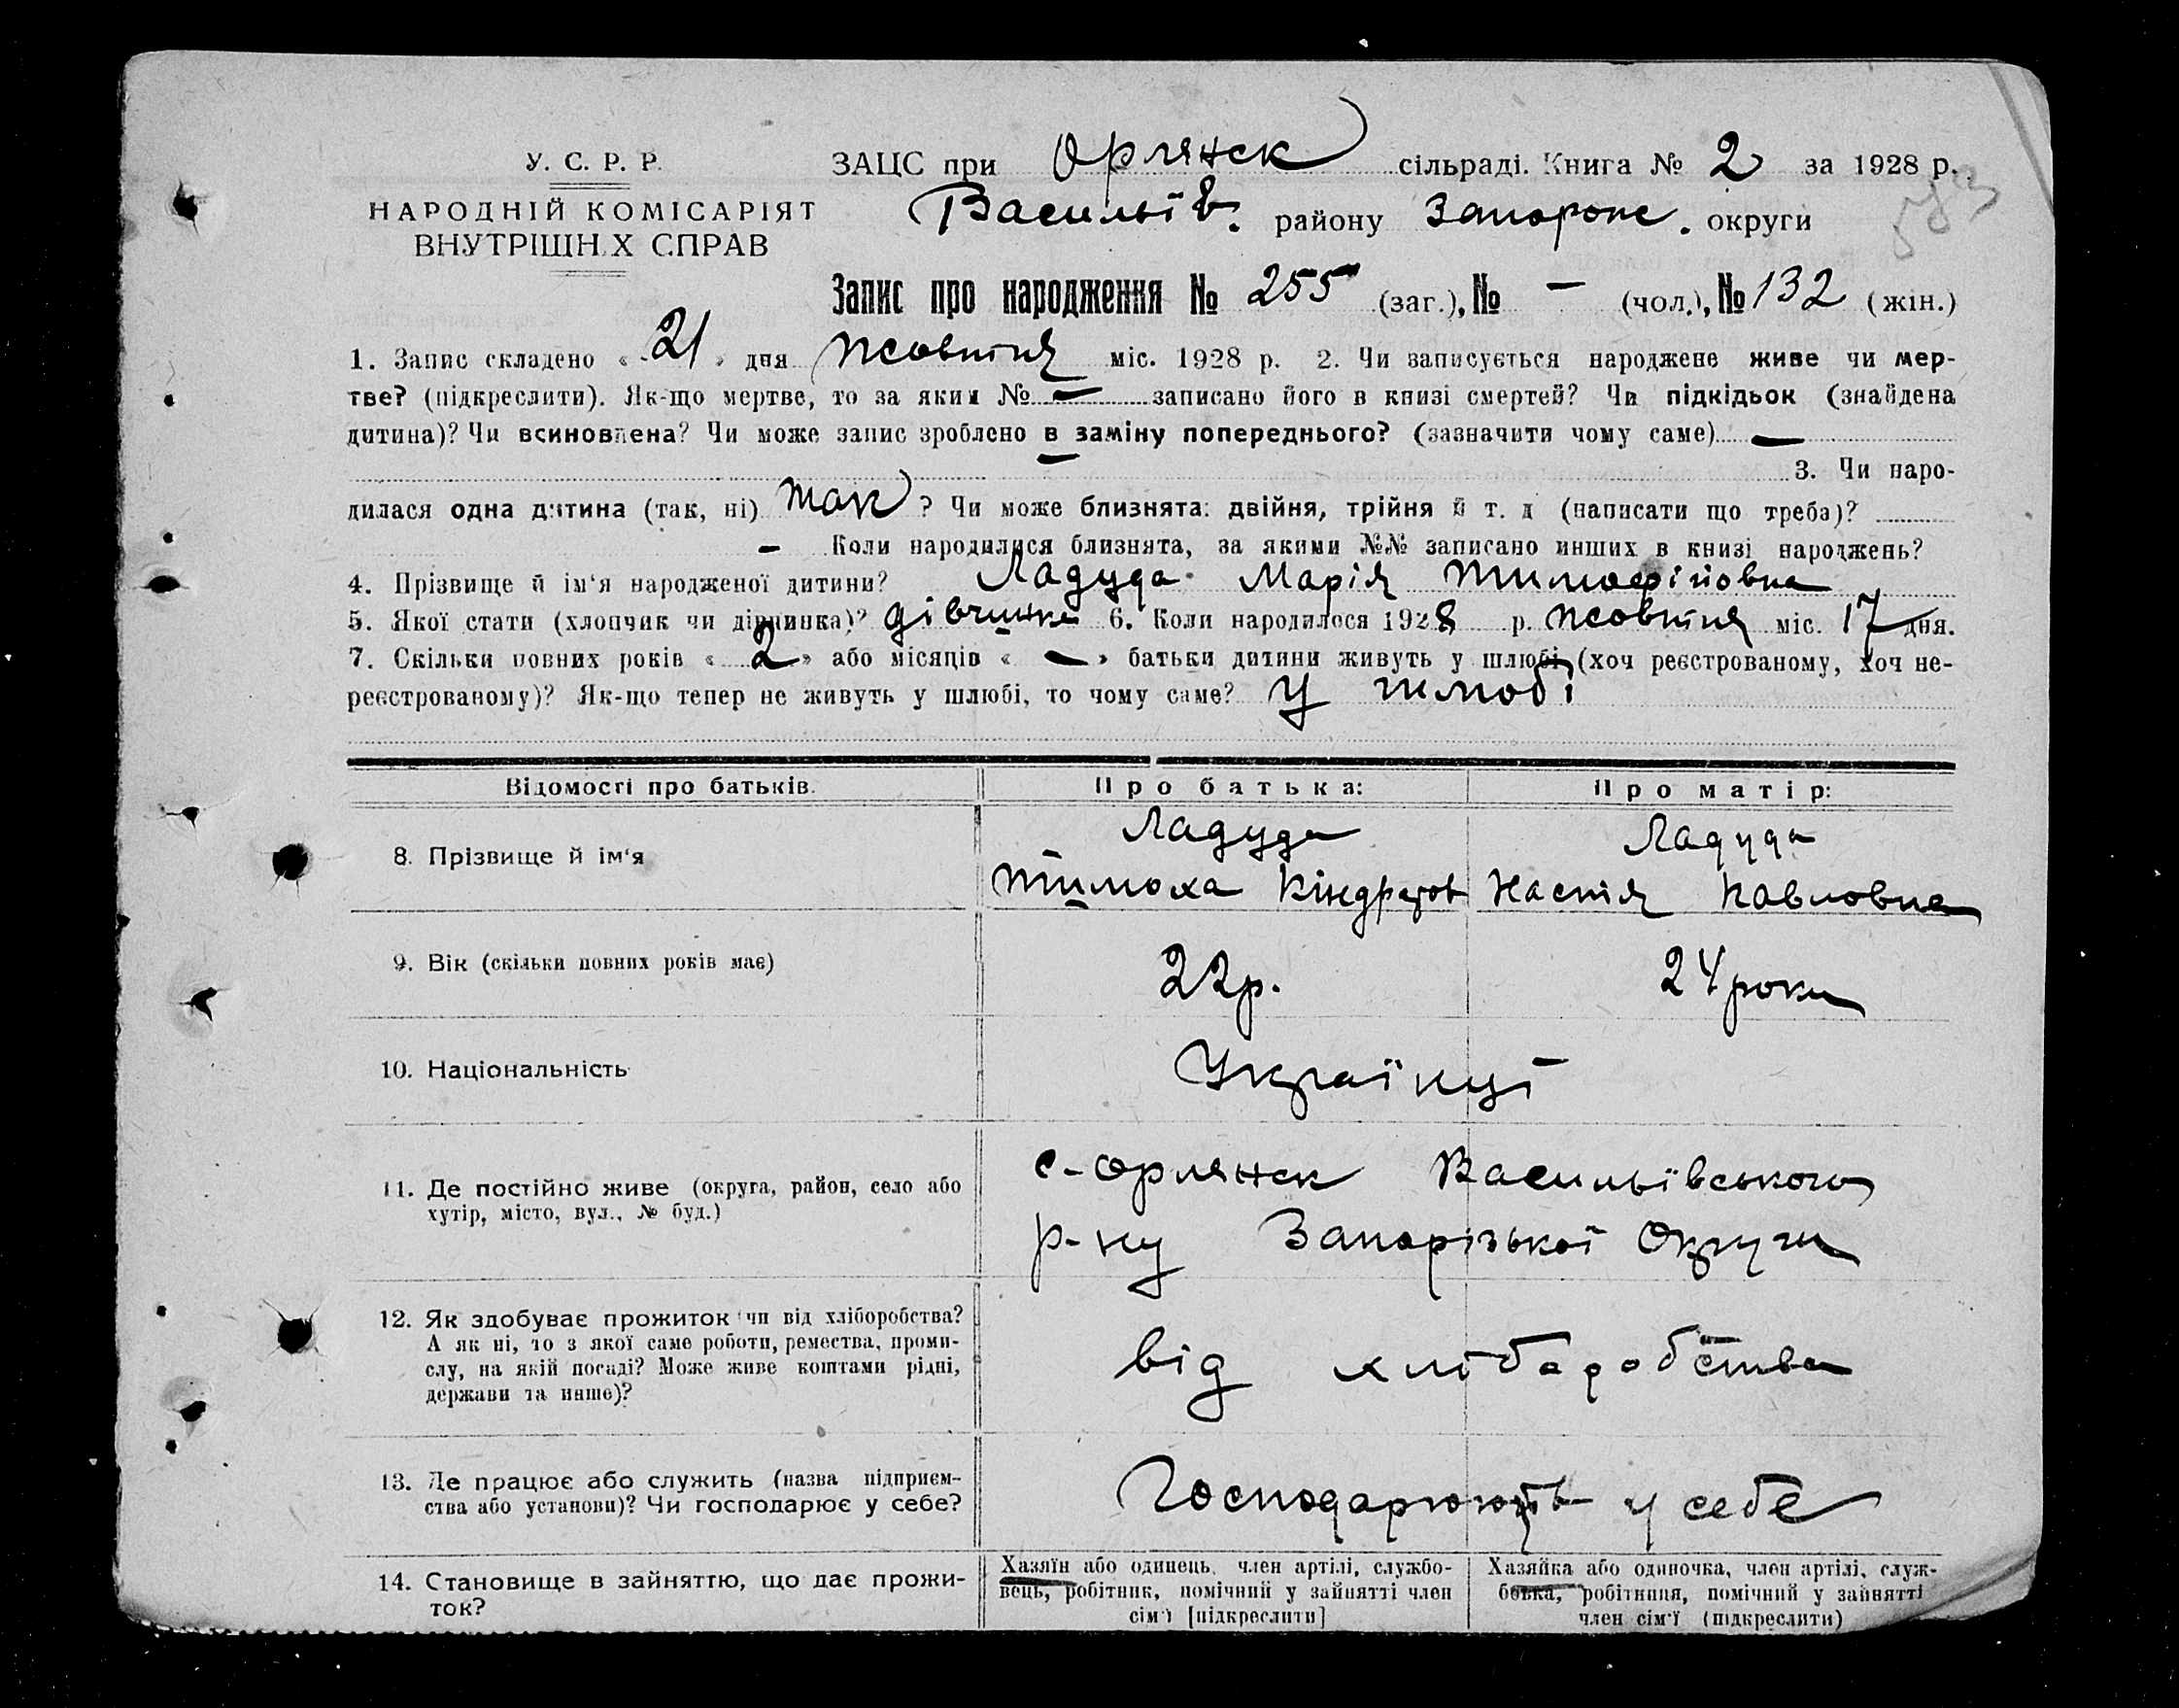 У. С. Р. Р.
НАРОДНІЙ КОМІСАРІЯТ
ВНУТРІШН.Х СПРАВ
ЗАЦС при Орлянск сільраді. Книга № 2 за 1928 р.
Васильїв. району Запорож. округи
583
Запис про народження № 255 (заг.), № — (чол.), № 132 (жін.)
1. Запис складено « 21 » дня Жовтня міс. 1928 р. 2. Чи записується народжене живе чи мер-
тве? (підкреслити). Як-що мертве, то за яким № — записано його в книзі смертей? Чи підкідьок (знайдена
дитина)? Чи всиновлена? Чи може запис зроблено в заміну попереднього? (зазначити чому саме) —
3. Чи наро-
дилася одна дитина (так, ні) так ? Чи може близнята: двійня, трійня й т. д (написати що треба)?
— Коли народилися близнята, за якими №№ записано инших в книзі народжень?
4. Прізвище й ім‘я народженої дитини? Ладуда Марія Тимофійовна
5. Якої стати (хлопчик чи дівчинка)? дівчинка 6. Коли народилося 1928 р. жовтня міс. 17 дня.
7. Скільки повних років « 2 » або місяців « — » батьки дитини живуть у шлюбі (хоч реєстрованому, хоч не-
реєстрованому)? Як-що тепер не живуть у шлюбі, то чому саме? У шлюбі
Відомості про батьків. Про батька: Про матір:
8. Прізвище й ім‘я
Ладуда
Тимоха Кіндратов
Ладуда
Настія Павловна
9. Вік (скільки повних років має) 22р. 24 роки
10. Національність Українці
11. Де постійно живе (округа, район, село або
хутір, місто, вул., № буд.)
с-Орлянск Васильївського
р-ну Запорізької Округи
12. Як здобуває прожиток чи від хліборобства?
А як ні, то з якої саме роботи, ремества, проми-
слу, на якій посаді? Може живе коштами рідні,
держави та инше)?
від хлібаробства
13. Де працює або служить (назва підприєм-
ства або установи)? Чи господарює у себе?
Господарюють у себе
14. Становище в зайняттю, що дає прожи-
ток?
Хазяїн або одинець, член артілі, службо-
вець, робітник, помічний у зайнятті член
сім‘ї [підкреслити]
Хазяйка або одиночка, член артілі, служ-
бовка, робітниця, помічний у зайнятті
член сім‘ї (підкреслити)